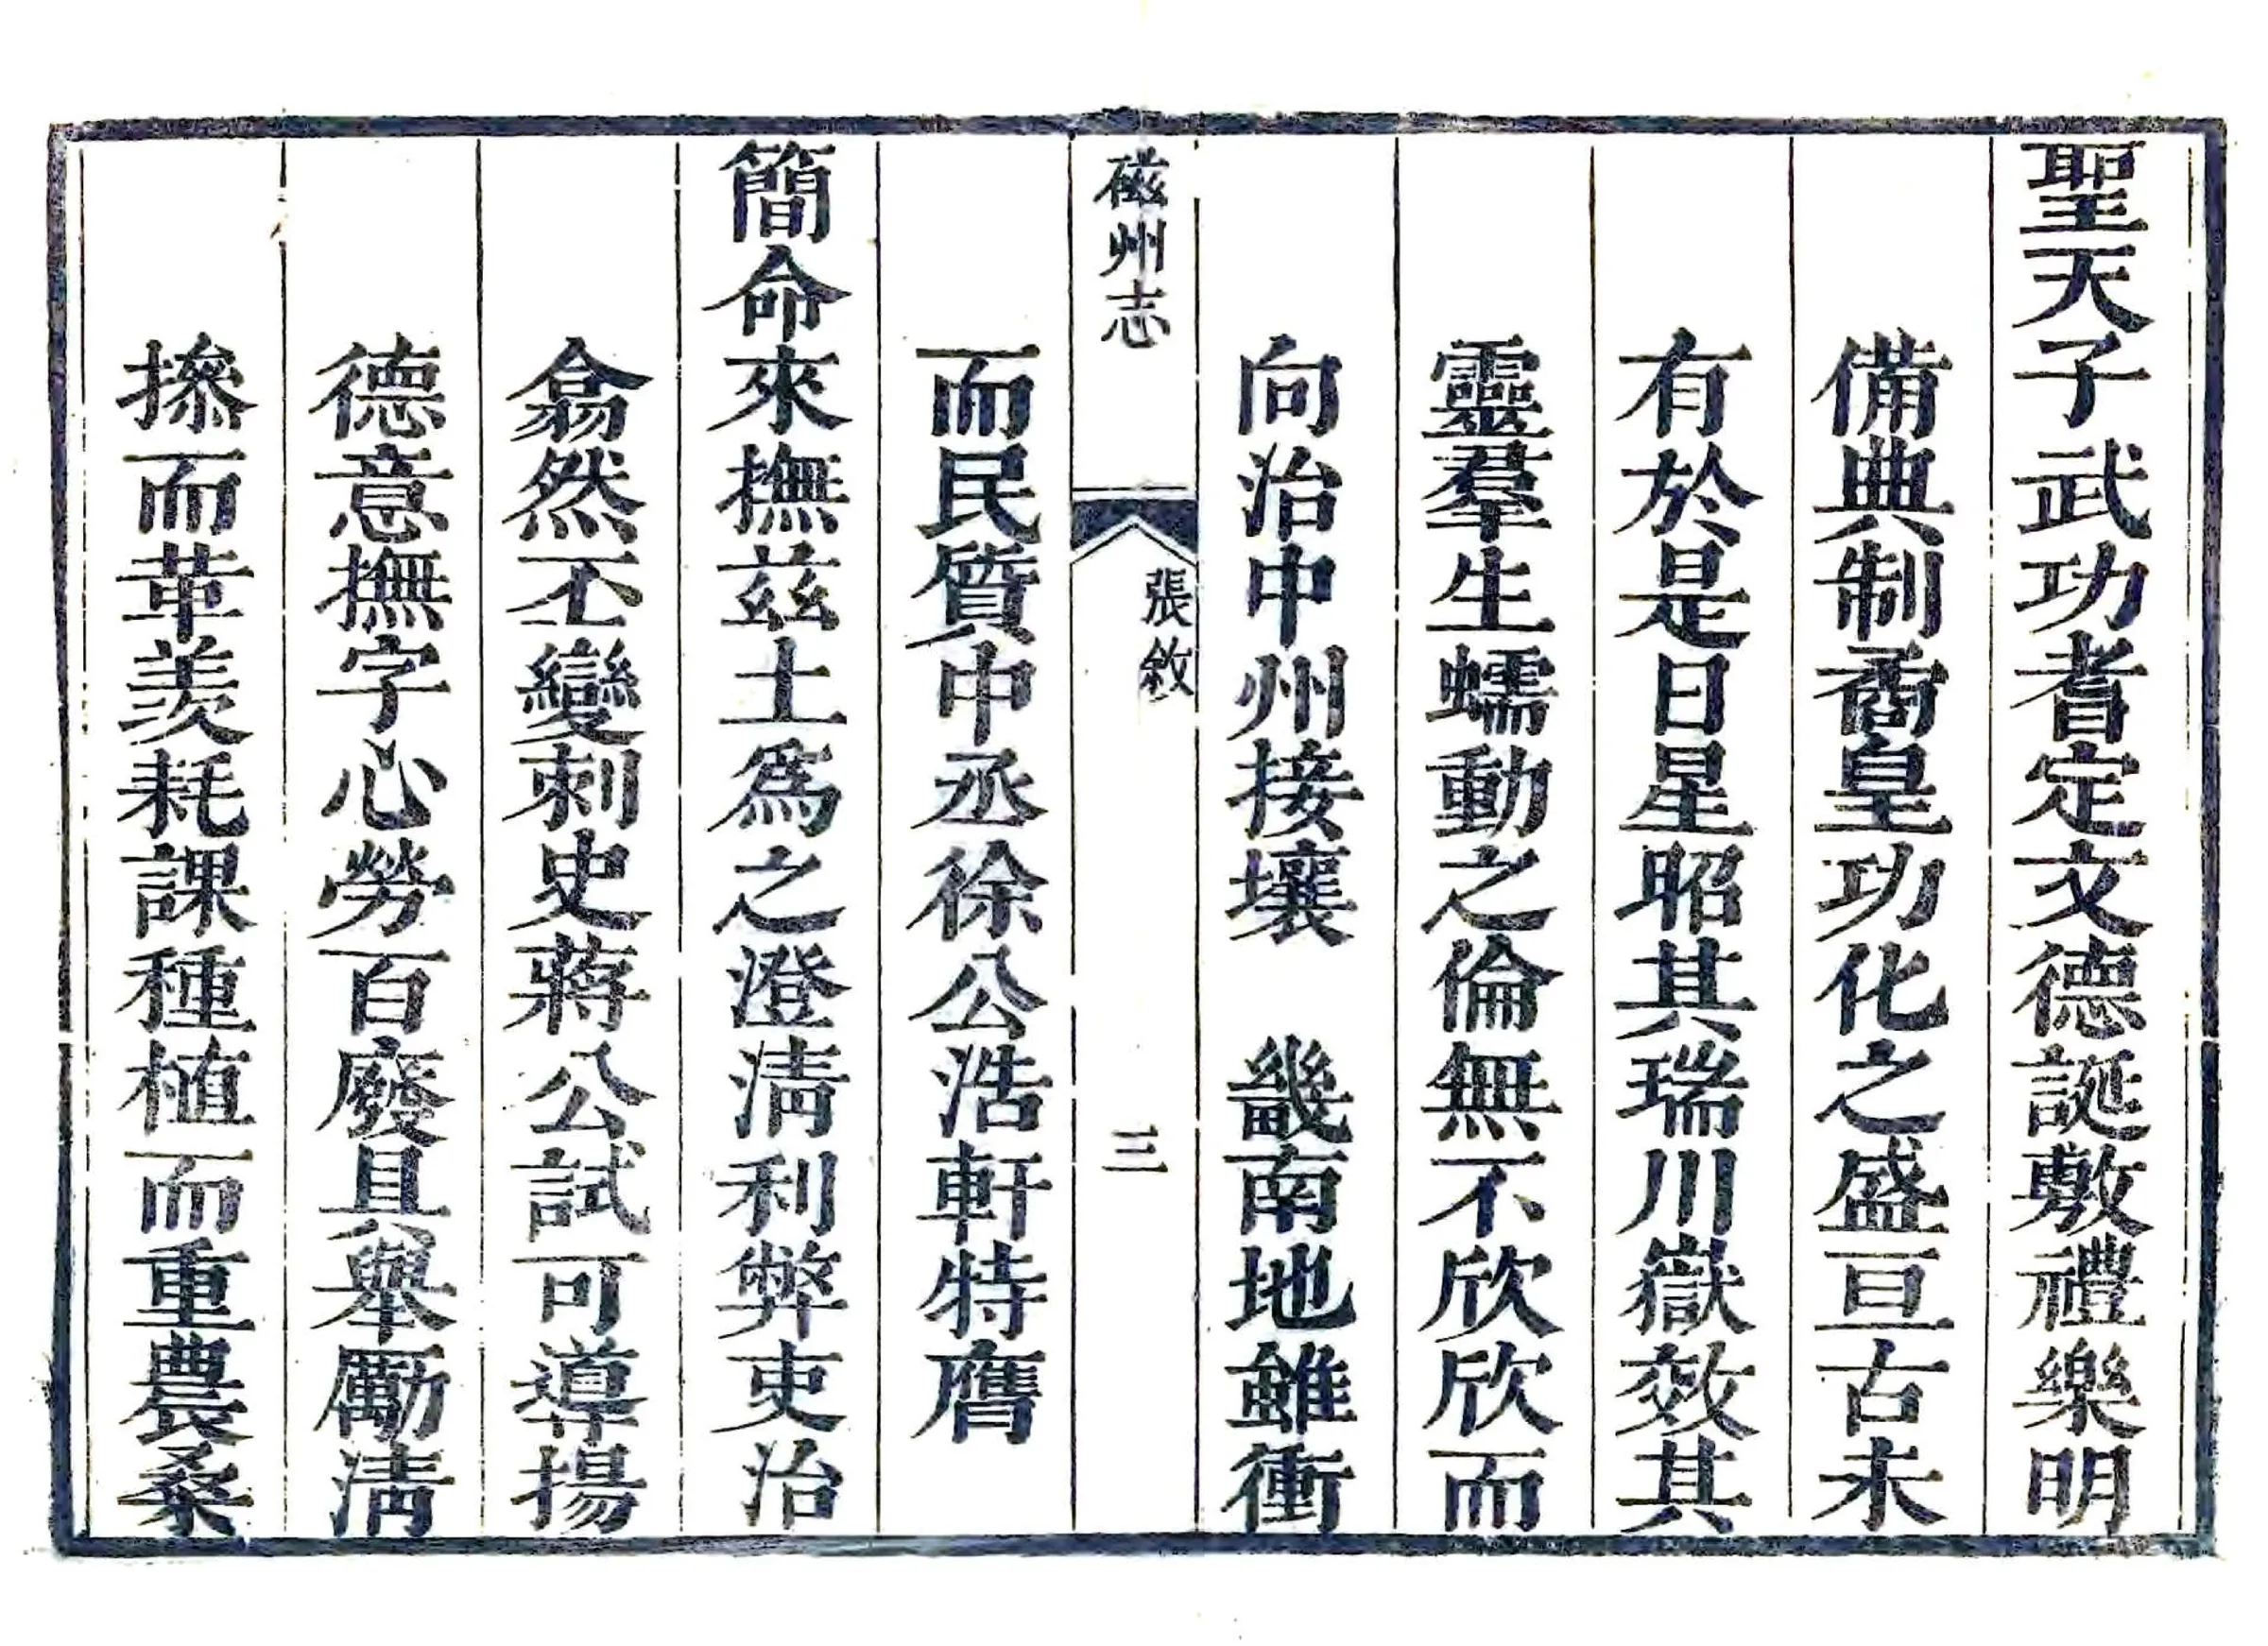 聖天子武功耆定文德誕敷禮樂明
備典制矞皇功化之盛亘古未
有於是日星昭其瑞川嶽效其
靈羣生蠕動之倫無不欣欣而
向治中州接壤　畿南地雖衝
磁州志
張敘
三
而民質中丞徐公浩軒特膺
簡命來撫茲土爲之澄清利弊吏治
翕然丕變刺史蔣公試可導揚
德意撫字心勞百廢具舉勵清
摻而革羨耗課種植而重農桑